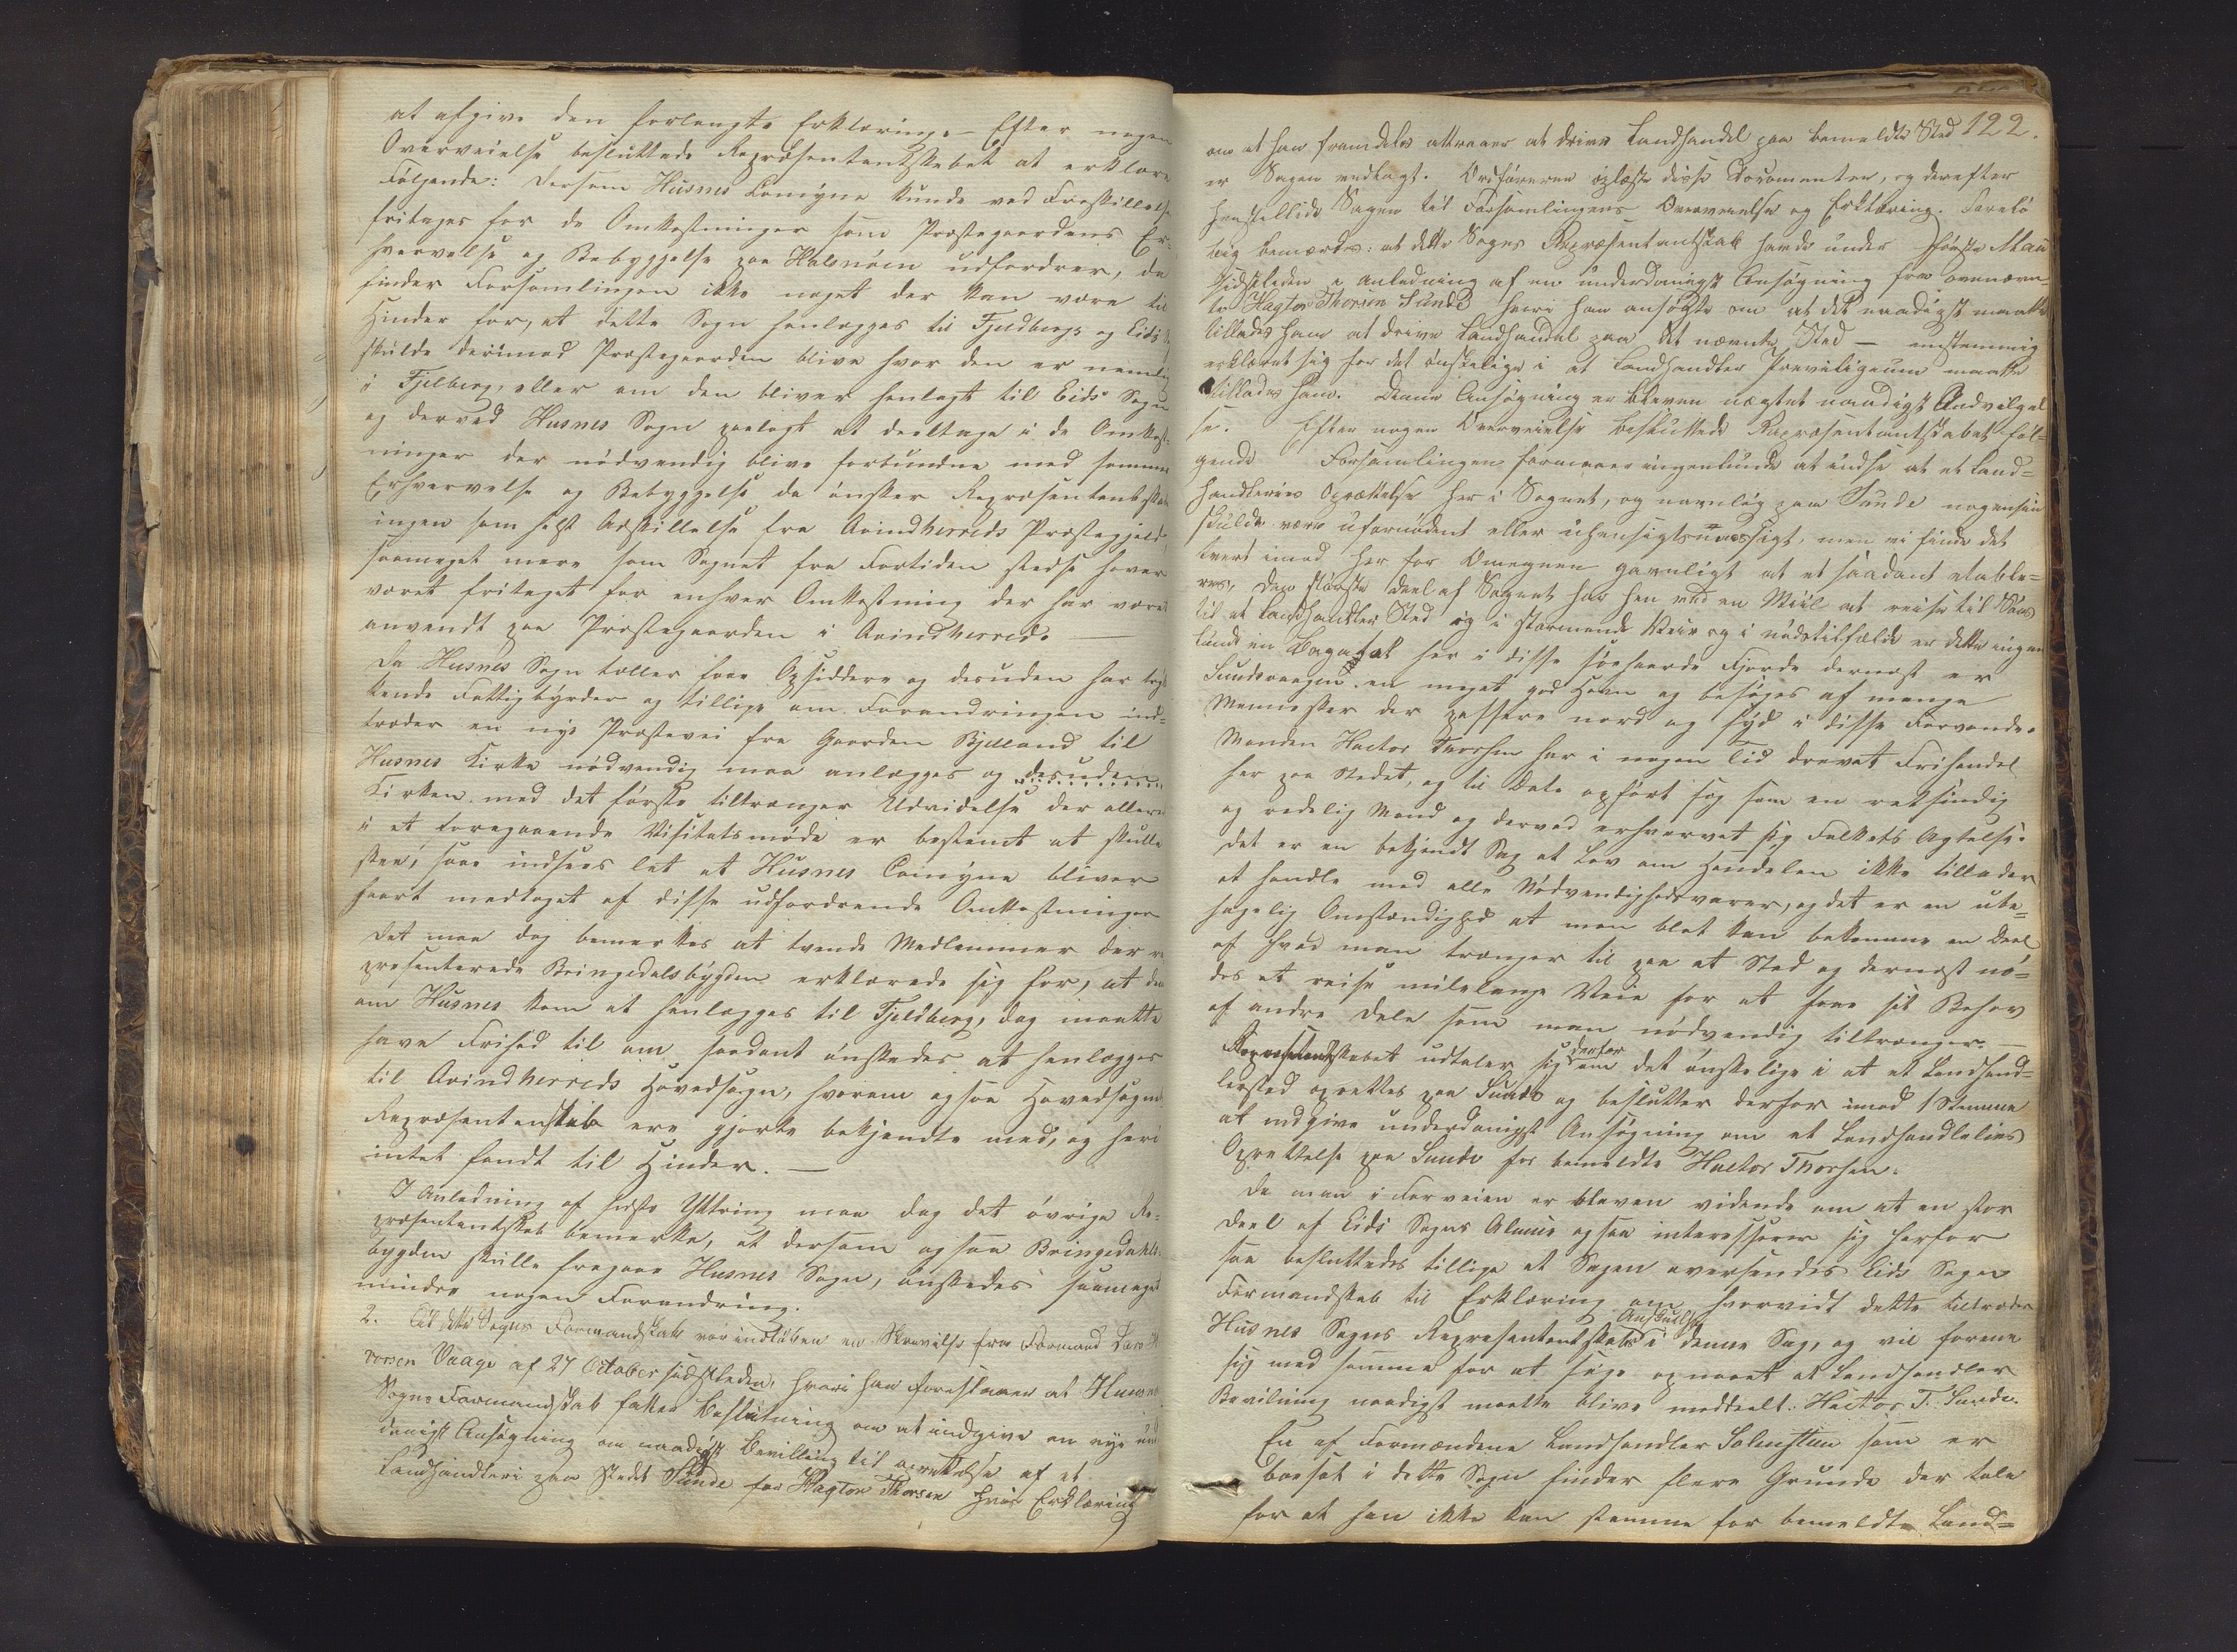 at afgive den forlangte Erklæring. – Efter nogen
Overveielse besluttede Repræsentantskabet at erklære
Følgende: Dersom Husnes Comyne kunde ved Fraskillelse
fritages for de Omkostninger som Præstegaardens Er-
hvervelse og Bebyggelse paa Halsnøen udfordrer, da
finder Forsamlingen ikke noget der kan være til
Hinder for, at dette Sogn henlægges til Fjeldbergs og Eids
skulde derimod Præstegaarden blive hvor den er nemlig
i Fjelberg, eller om den bliver henlagt til Eids Sogn
og derved Husnes Sogn paalagt at deeltage i de Omkost-
ninger der nödvendig blive forbundne med samme
Erhvervelse og Bebyggelse da ønsker Repræsentantskabet
ingen som helst Adskillelse fra Qvindherreds Præstegjeld,
saameget mere som Sognet fra Fortiden stedse haver
været fritaget for enhver Omkostning der har været
anvendt paa Præstegaarden i Qvindherred. –
Da Husnes Sogn tæller faae Opsiddere og desuden har tryk-
kende Fattigbyrder og tillige om Forandringen ind-
træder en nye Præstevei fra Gaarden Bjelland til
Husnes Kirke nödvendig maa anlægges og desuden
Kirken med det første tiltrænger Udvidelse der allerede
i et foregaaende Visitatsmöde er bestemt at skulle
skee, saa indsees let at Husnes Comyne bliver
haart medtaget af disse udfordrende Omkostninger
Det maa dog bemærkes at tvende Medlemmer der re-
præsenterede Bringedalsbygden erklærede sig for, at der-
om Husnes kom at henlægges til Fjeldberg, dog maatte
have Frihed til om saadant ønskedes at henlægges
til Qvindherreds Hovedsogn, hvorom ogsaa Hovedsognets
Repræsentanskab ere gjorte bekjendte med, og heri
intet fandt til Hinder. –
I Anledning af sidste Yttring maa dog det övrige Re-
præsentantskab bemærke, at dersom ogsaa Bringedahls-
bygden skulle fragaae Husnes Sogn, ønskedes saameget
mindre nogen Forandring.
2. Til dette Sogns Formandskab var indløben en Skrivelse fra Formand
Vaage af 27 October sidstleden, hvori han foreslaaer at Husnes
Sogns Formandskab fatter Beslutning om at indgive en nye un-
danigst Ansøgning om naadigst Bevilling til oprettelse af et
Landhandleri paa Stedet Sunde for Hagtor Thorsen hvis Erklæring
122.
om at han fremdeles attraaer at drive Landhandel paa bemeldte Sted
er Sagen vedlagt. Ordføreren oplæste disse Documenter, og derefter
henstillede Sagen til Forsamlingens Overveielse og Erklæring. Forelø-
big bemærkes: at dette Sogns Repræsentantskab havde under første Mai
sidstleden i anledning af en underdanigst Ansøgning fra ovennævn-
te Hagtor Thorsen Sunde hvori han ansøgte om at det naadigst maatte
tillades ham at drive Landhandel paa det nævnte Sted – enstemmig
erklæret sig for det ønskelige i at Landhandler Previligeum maatte
tillades ham. Denne Ansøgning er bleven nægtet naadigst Andvilgel
se. Efter nogen Overveielse besluttede Repræsentantskabet føl-
gende Forsamlingen formaaer ingenlunde at indse at et Land-
handleries Oprættelse her i Sognet, og navnlig paa Sunde nogensin
skulde være ufornødent eller uhensigtsmæssigt, men vi finde det
tvert imod her for Omegnen gavnligt at et saadant etable-
res, den største deel af Sognet har hen ved en Miil at reise til Søes
til et Landhandler Sted og i stormende Veir og i nødstilfælde er dette ingen
lunde en Bagatel her i disse søehaarde Fjorde dernæst er
Sundsvaagen en meget god Havn og besøges af mange
Mennesker der passere nord og syd i disse Farvande.
Manden Hactor Thorsen har i nogen Tid drevet Frihandel
her paa Stedet, og til Dato opført sig som en retsindig
og redelig Mand og derved erhvervet sig Folkets Agtelse.
Det er en bekjendt Sag at Lov om Handelen ikke tillader
at handle med alle Nödvendighedsvarer, og det er en ube-
hagelig Omstændighed at man blot kan bekomme en Deel
af hvad man trænger til paa et Sted og dernæst nö-
des at reise milelange Veie for at faae sit Behov
af andre Dele som man nödvendig tiltrænger. –
Repræsentantskabet udtaler sig derfor om det ønskelige i at et Landhand-
lersted oprettes paa Sunde og beslutter derfor imod 1 Stemme
at indgive underdanigst Ansøgning om et Landhandleries
Oprettelse paa Sunde for bemeldte Hactor Thorsen.
Da man i Forveien er bleven vidende om at en stor
Deel af Eids Sogns Almue ogsaa interesserer sig herfor
saa besluttedes tillige at Sagen oversendes Eids Sogns
Formandskab til Erklæring om hvorvidt dette tiltræder
Husnes Sogns Repræsentantskabs Anskuelse i denne Sag, og vil forene
sig med samme for at søge opnaaet at Landhandler
Bevilning naadigst maatte blive meddeelt: Hactor T. Sunde.
En af Formændene Landhandler som er
boesat i dette Sogn finder flere Grunde der tale
for at han ikke kan stemme for bemeldte Land-